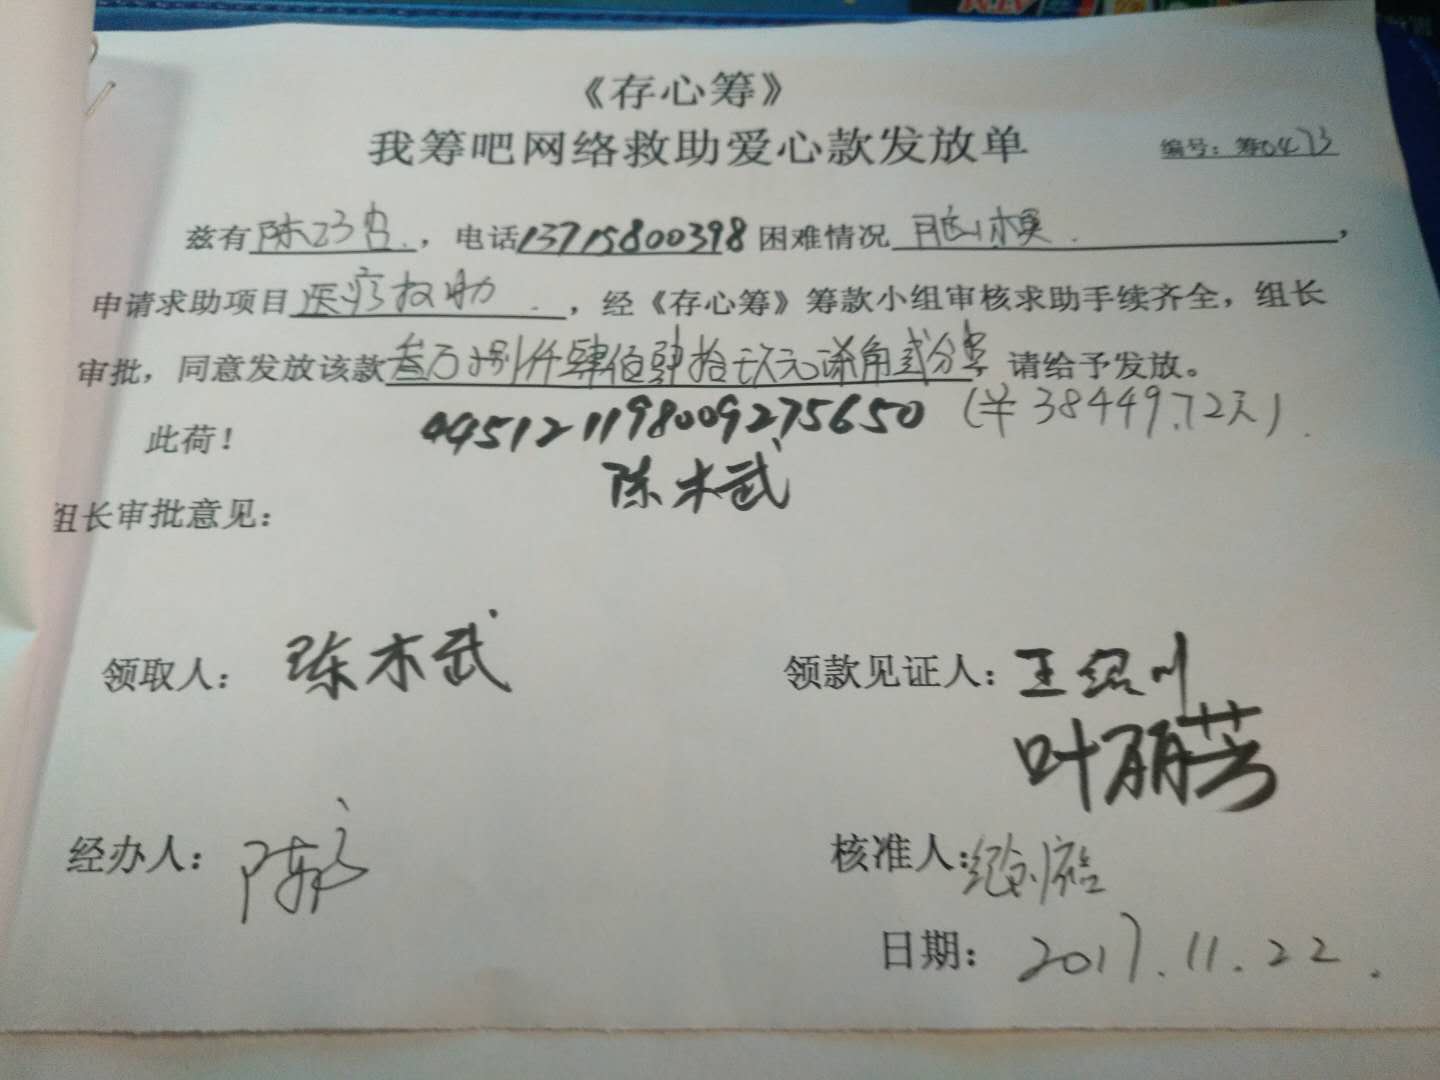 《存心筹》
我筹吧网络救助爱心款发放单 编号：筹0473
兹有陈, 电话13715800398 困难情况脑梗.,
申请求助项目医疗救助., 经《存心筹》筹款小组审核求助手续齐全，组长
审批，同意发放该款叁万捌仟肆佰肆拾玖元柒角贰分 请给予发放。
此荷！ 445121198009275650 (￥38449.72元).
陈木武
组长审批意见：
领取人：陈木武 领款见证人：王绍川
叶丽芳
经办人：陈 核准人：纪
日期：2017.11.22.